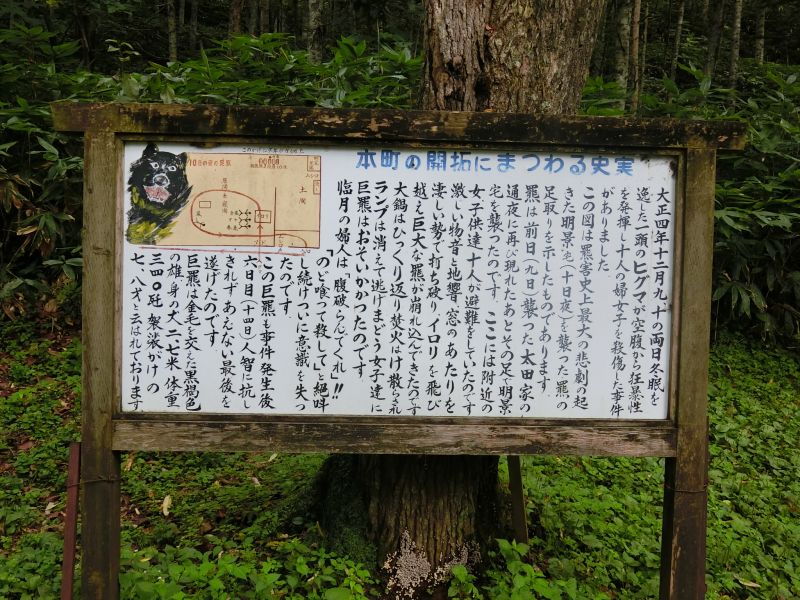 本町の開拓にまつわる史実
大正四年十二月九、十の両日冬眠を
逸した一頭のヒグマが空腹から狂暴性
を発揮し十人の婦女子を殺傷した事件
がありました
この図は羆害史上最大の悲劇の起
きた明景宅(十日夜)を襲った羆の
足取りを示したものであります
羆は前日(九日)襲った太田家の
通夜に再び現れたあとその足で明景
宅を襲ったのです。ここには附近の
女子供達十人が避難をしていたのです
激しい物音と地響、窓のあたりを
凄しい勢で打ち破り、イロリを飛び
越え巨大な羆が崩れ込んできたのです
大鍋はひっくり返り焚火はけ散らされ
ランプは消えて逃げまどう女子達に
巨羆はおそいかかつたのです
臨月の婦人は「腹破らんでくれ!!
のど喰って殺して」と絶叫
し続けついに意識を失っ
たのです
この巨羆も事件発生後
六日目(十四日)人智に抗し
きれずあえない最後を
遂げたのです
巨羆は金毛を交えた黒褐色
の雄身の丈二.七米 体重
三四〇瓩 袈裟がけの
七、八才と云はれております
土間